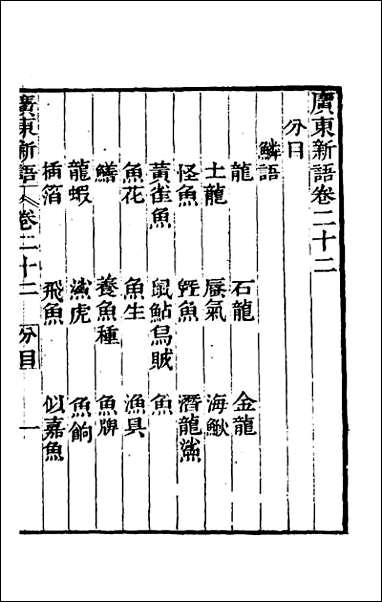 廣東新語卷二十二
分目
鱗語
龍　石龍　金龍
土龍　蜃氣　海鰍
怪魚　暨魚　潛龍鯊
黃雀魚　鼠鮎烏賊　魚
魚花　魚生　漁具
鱔　養魚種　魚牌
龍蝦　鯊虎　魚餉
插箔　飛魚　似嘉魚
廣東新語　卷二十二　分目　一